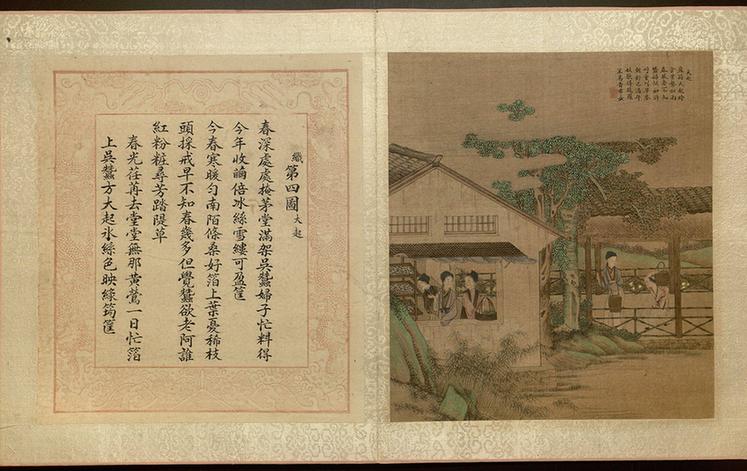 大起
織第四圖 大起
春深處處掩茅堂滿架吳蠶婦子忙料得
今年收繭倍冰絲雪縷可盈筐
今春寒暖勻南陌條桑好箔上葉憂稀枝
頭採戒早不知春幾多但覺蠶欲老阿誰
紅粉粧尋芳踏隄草
春光荏苒去堂堂無那黃鶯一日忙箔
上吳蠶方大起氷絲色映綠筠筐